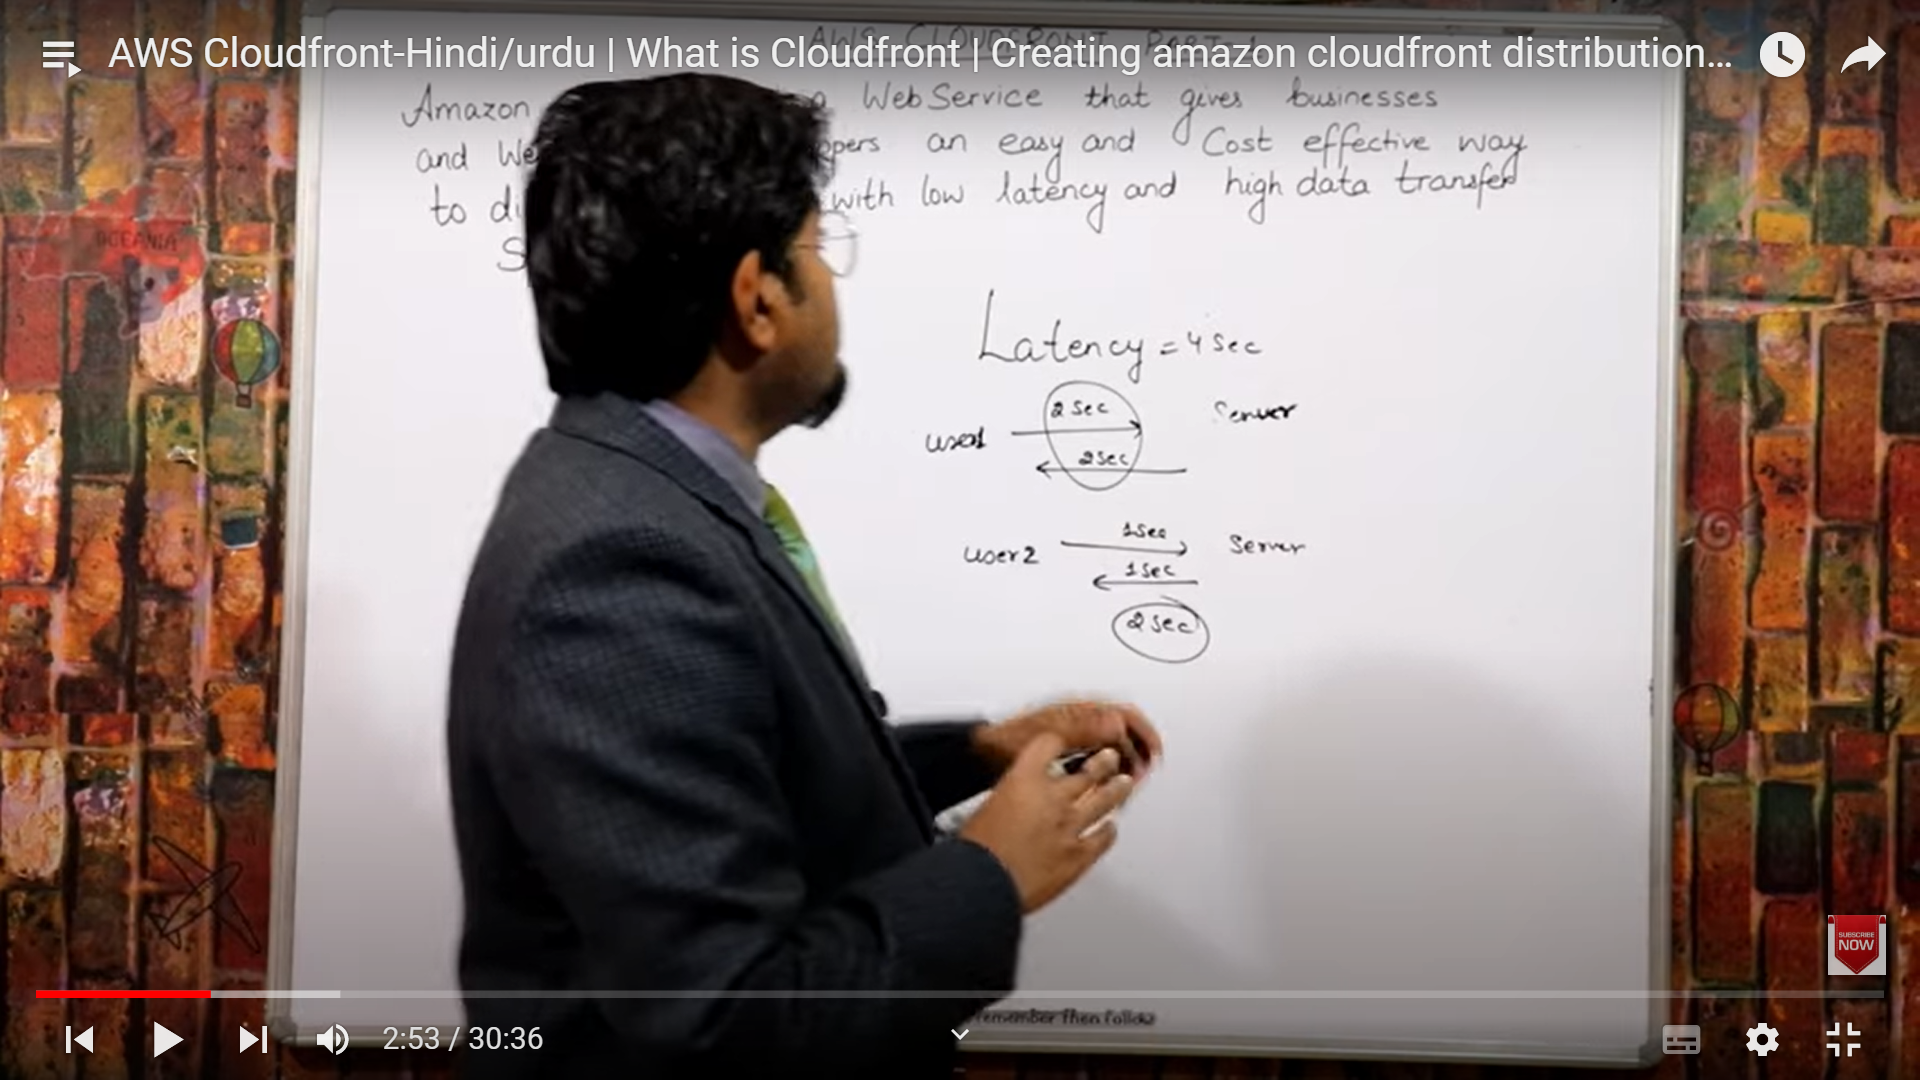 AWS Cloudfront-Hindi/urdu | What is Cloudfront | Creating amazon cloudfront distribution...
AWS CLOUDFRONT PART-1
Amazon a WebService that gives businesses
and We opers an easy and Cost effective way
to di with low latency and high data transfer
S
OCEANIA
Latency = 4 Sec
2 Sec Server
user1
2 Sec
1 Sec
user 2 Server
1 Sec
2 Sec
SUBSCRIBE
NOW
remember then follow
2:53 / 30:36